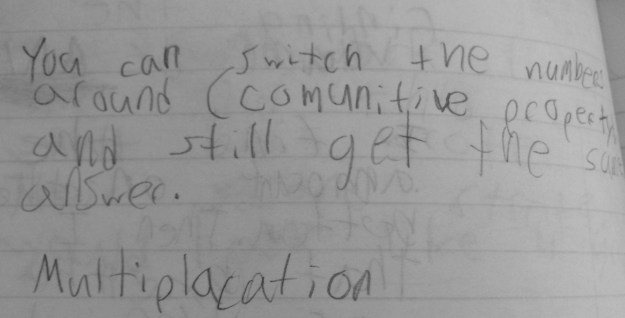 You can switch the number
around (comunitive property
and still get the
answer.
Multiplacation